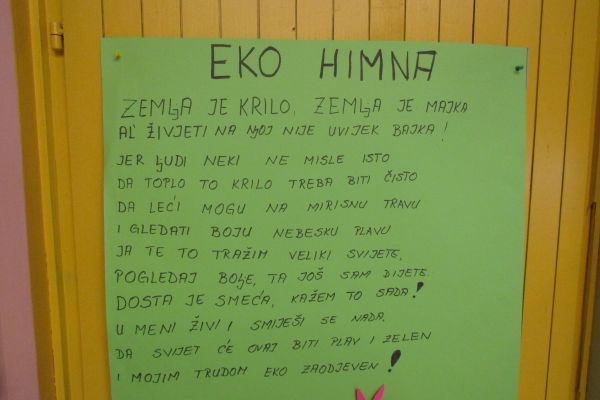 EKO HIMNA
ZEMLJA JE KRILO, ZEMLJA JE MAJKA
AL' ŽIVJETI NA NJOJ NIJE UVIJEK BAJKA!
JER LJUDI NEKI NE MISLE ISTO
DA TOPLO TO KRILO TREBA BITI ČISTO
DA LEĆI MOGU NA MIRISNU TRAVU
I GLEDATI BOJU NEBESKU PLAVU
JA TE TO TRAŽIM VELIKI SVIJETE,
POGLEDAJ BOLJE, TA JOŠ SAM DIJETE.
DOSTA JE SMEĆA, KAŽEM TO SADA!
U MENI ŽIVI I SMIJEŠI SE NADA.
DA SVIJET ĆE OVAJ BITI PLAV I ZELEN
I MOJIM TRUDOM EKO ZAODJEVEN!